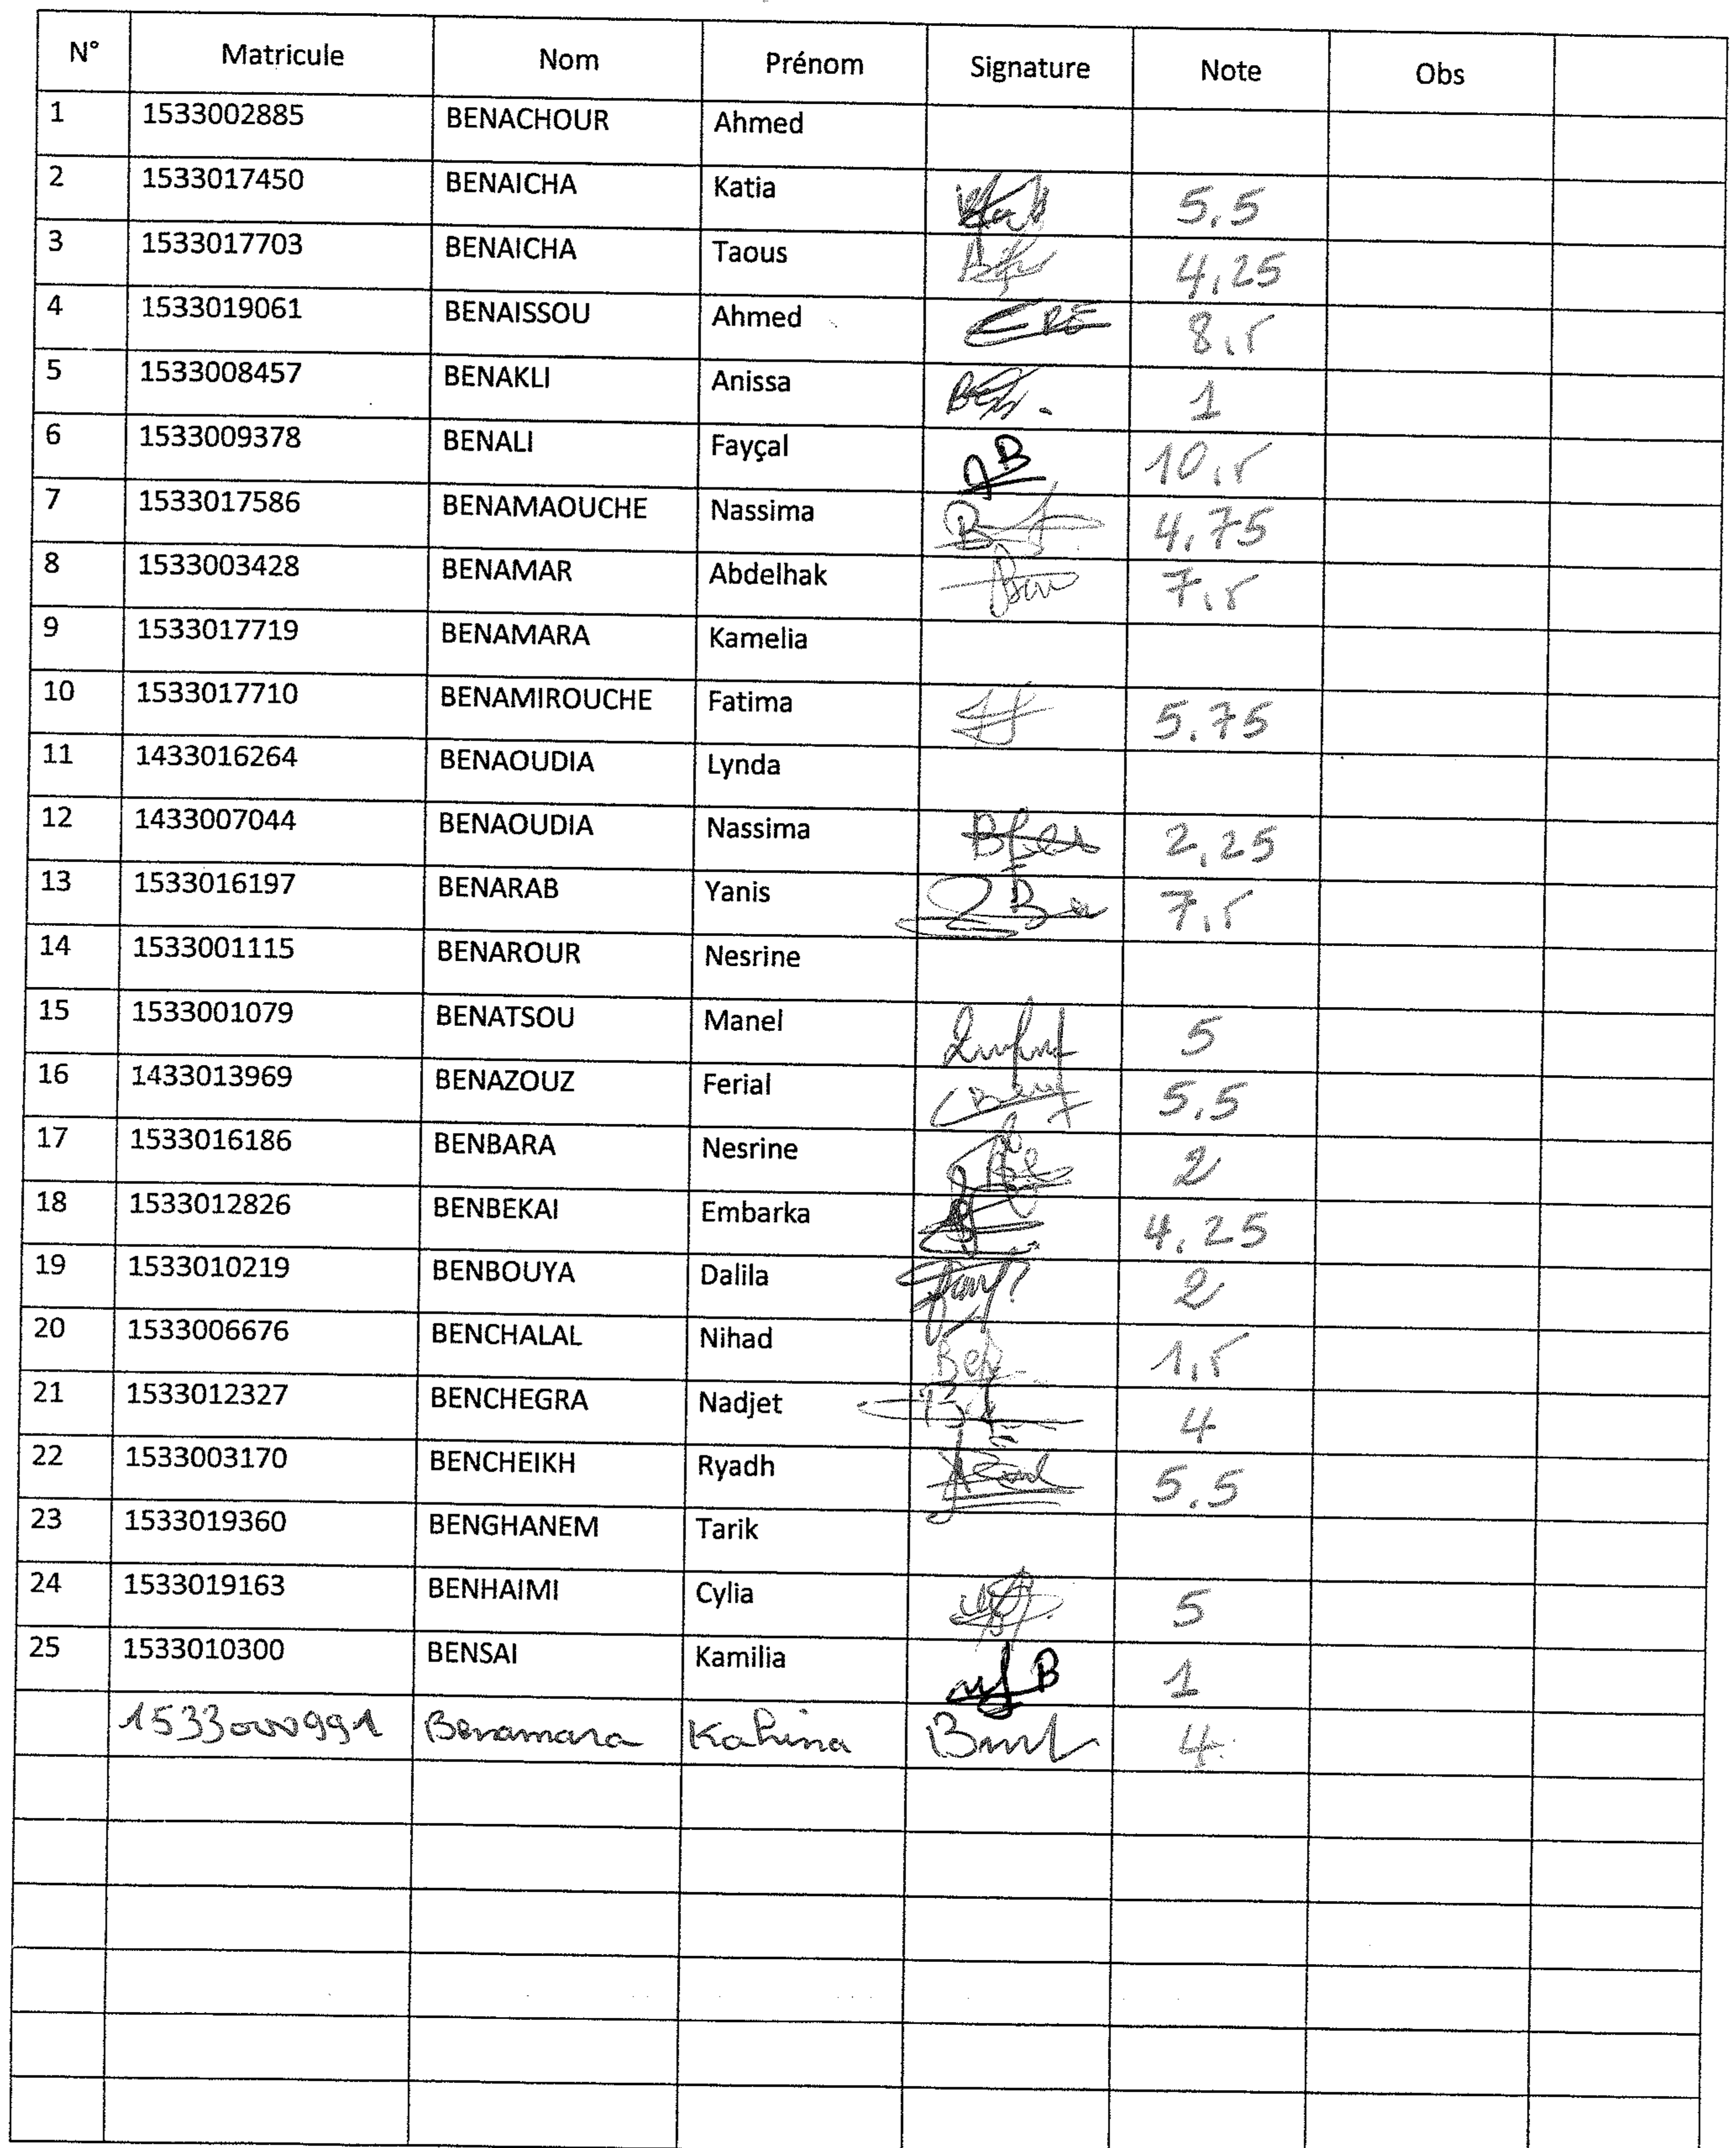 N° Matricule Nom Prénom Signature Note Obs
1 1533002885 BENACHOUR Ahmed
2 1533017450 BENAICHA Katia 5,5
3 1533017703 BENAICHA Taous 4,25
4 1533019061 BENAISSOU Ahmed 8,5
5 1533008457 BENAKLI Anissa 1
6 1533009378 BENALI Fayçal 10,5
7 1533017586 BENAMAOUCHE Nassima 4,75
8 1533003428 BENAMAR Abdelhak 7,5
9 1533017719 BENAMARA Kamelia
10 1533017710 BENAMIROUCHE Fatima 5,75
11 1433016264 BENAOUDIA Lynda
12 1433007044 BENAOUDIA Nassima 2,25
13 1533016197 BENARAB Yanis 7,5
14 1533001115 BENAROUR Nesrine
15 1533001079 BENATSOU Manel 5
16 1433013969 BENAZOUZ Ferial 5,5
17 1533016186 BENBARA Nesrine 2
18 1533012826 BENBEKAI Embarka 4,25
19 1533010219 BENBOUYA Dalila 2
20 1533006676 BENCHALAL Nihad 1,5
21 1533012327 BENCHEGRA Nadjet 4
22 1533003170 BENCHEIKH Ryadh 5,5
23 1533019360 BENGHANEM Tarik
24 1533019163 BENHAIMI Cylia 5
25 1533010300 BENSAI Kamilia 1
1533000991 Benamara Kahina 4